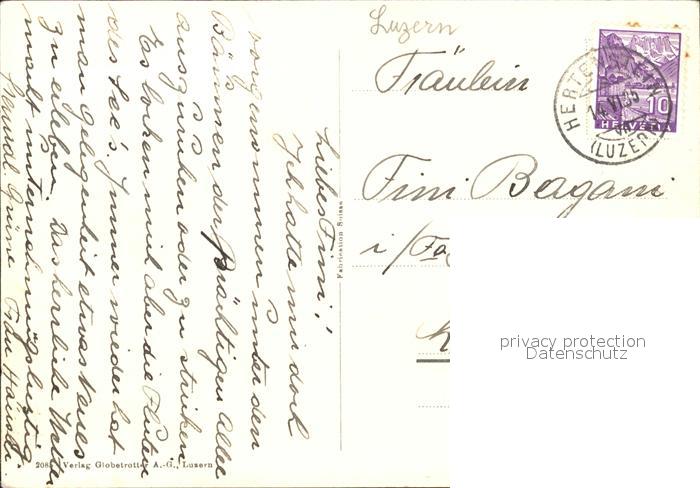 Luzern
Fräulein
Fini Bagani
i/Fa
HERTENSTEIN
14.VI.35
(LUZERN)
10
HELVETIA
Liebes Fini!
Ich hatte mir doch
vorgenommen unter den
Bäumen der prächtigen Allee
auszuruhen oder zu stricken
Es locken mich aber die Fluten
des See's. Immer wieder hat
man Gelegenheit etwas Neues
zu erleben. Das herrliche Wetter
macht unternehmungslustig
Grüne Frau
Fabrication Suisse
208 Verlag Globetrotter A.-G., Luzern
privacy protection
Datenschutz